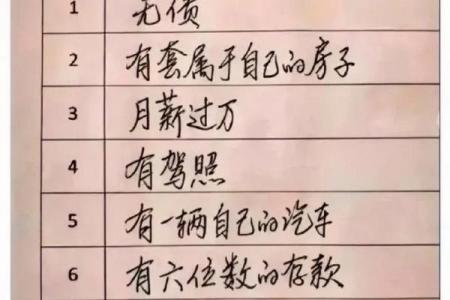 1 无债
2 有套属于自己的房子
3 月薪过万
4 有驾照
5 有一辆自己的汽车
6 有六位数的存款